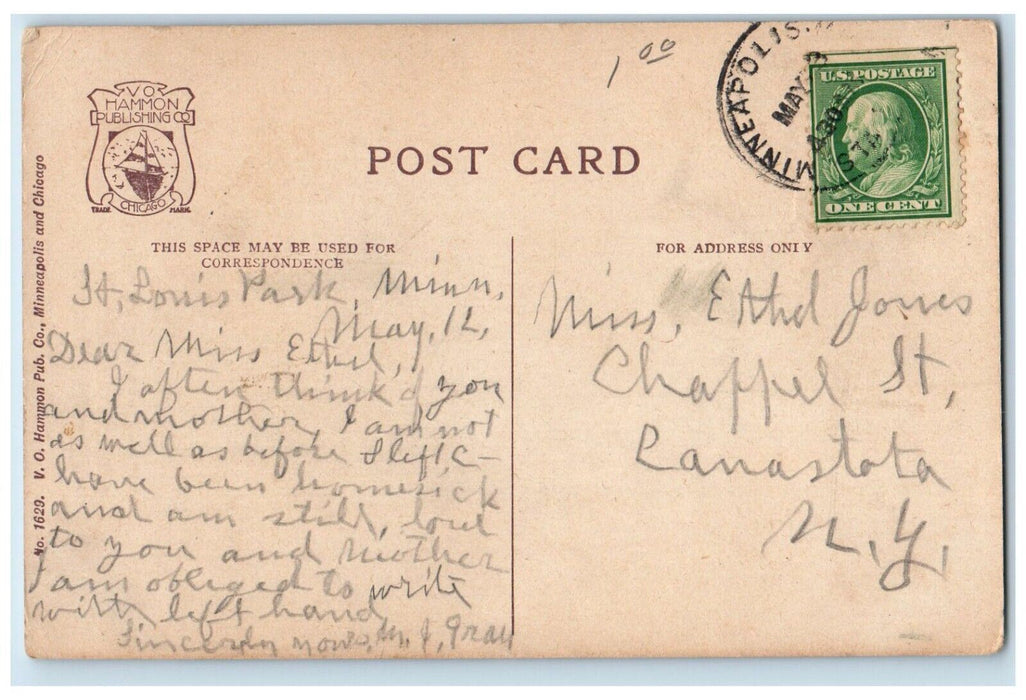 1 00
V O
HAMMON
PUBLISHING CO
CHICAGO
TRADE MARK
POST CARD
MINNEAPOLIS.
MAY
430
U.S. POSTAGE
ONE CENT
No. 1629. V. O. Hammon Pub. Co., Minneapolis and Chicago
THIS SPACE MAY BE USED FOR
CORRESPONDENCE
St, Louis Park, Minn,
May, 12,
Dear Miss Ethel,
I often think of you
and mother, I am not
as well as before I left, C-
have been homesick
and am still,
to you and mother
I am obliged to write
with left hand
Sincerely yours, M. J. Gray
FOR ADDRESS ONLY
Miss, Ethel Jones
Chappel St,
Canastota
N, Y,